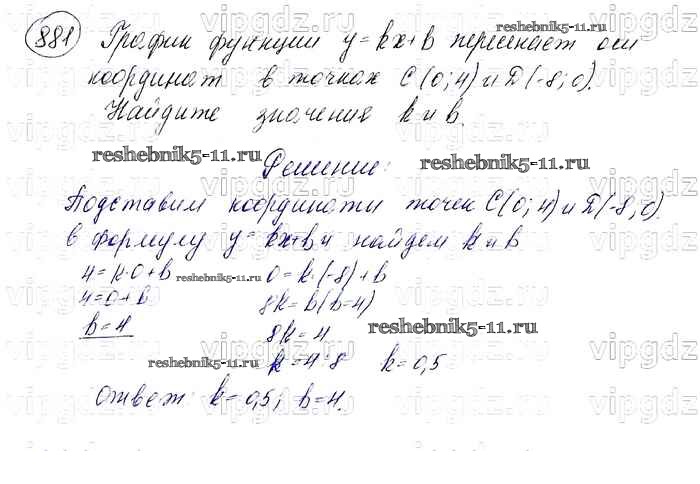 881 График функции y=kx+b пересекает оси
координат в точках C(0;4) и D(-8;0).
Найдите значения k и b.
Решение:
Подставим координаты точек C(0;4) и D(-8;0)
в формулу y=kx+b и найдем k и b
4=k·0+b 0=k·(-8)+b
4=0+b 8k=b(b=4)
b=4 8k=4
k=4:8 k=0,5
Ответ: k=0,5; b=4.
reshebnik5-11.ru
reshebnik5-11.ru
reshebnik5-11.ru
reshebnik5-11.ru
reshebnik5-11.ru
reshebnik5-11.ru
vipgdz
vipgdz
vipgdz
vipgdz